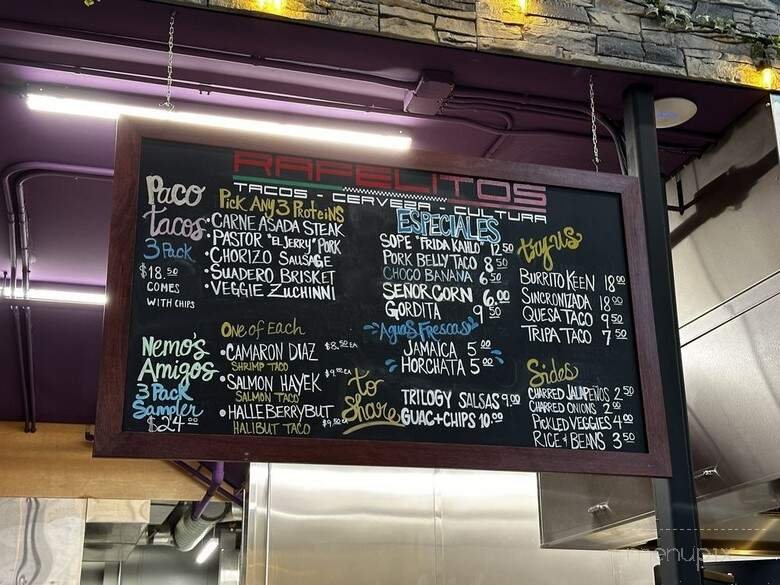 RAFELITOS
TACOS - CERVEZA - CULTURA
Paco tacos
3 Pack
$18.50
COMES
WITH CHIPS
Pick Any 3 Proteins
•CARNE ASADA STEAK
•PASTOR "EL JERRY" PORK
•CHORIZO SAUSAGE
•SUADERO BRISKET
•VEGGIE ZUCHINNI
Nemo's
Amigos
3 Pack
Sampler
$24.00
One of Each
•CAMARON DIAZ $8.50 EA
SHRIMP TACO
•SALMON HAYEK
SALMON TACO
•HALLEBERRYBUT $9.50 EA
HALIBUT TACO
ESPECIALES
SOPE "FRIDA KAHLO" 12.50
PORK BELLY TACO 8.50
CHOCO BANANA 6.50
SEÑOR CORN 6.00
GORDITA 9.50
"Aguas Frescas"
JAMAICA 5.00
HORCHATA 5.00
to Share
TRILOGY SALSAS 9.00
GUAC+CHIPS 10.00
try us
BURRITO KEEN 18.00
SINCRONIZADA 18.00
QUESA TACO 9.50
TRIPA TACO 7.50
Sides
CHARRED JALAPEÑOS 2.50
CHARRED ONIONS 2.00
PICKLED VEGGIES 4.00
RICE + BEANS 3.50
menupix